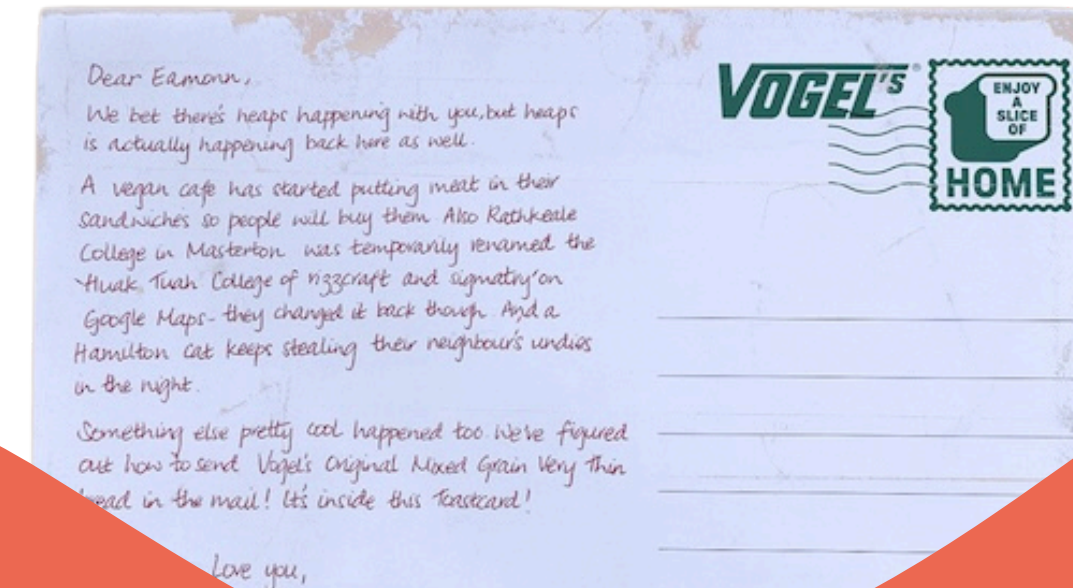 Dear Eamonn,
We bet there's heaps happening with you, but heaps
is actually happening back here as well.
A vegan cafe has started putting meat in their
sandwiches so people will buy them. Also Rathkeale
College in Masterton was temporarily renamed the
'Huak Tuah College of rizzcraft and sigmatry' on
Google Maps - they changed it back though. And a
Hamilton cat keeps stealing their neighbour's undies
in the night.
Something else pretty cool happened too. We've figured
out how to send Vogel's Original Mixed Grain Very Thin
bread in the mail! It's inside this Toastcard!
Love you,
VOGEL'S®
ENJOY
A
SLICE
OF
HOME